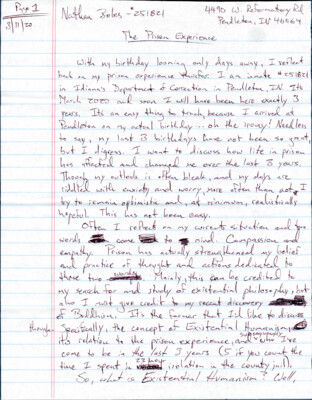 Page 1
3/11/20
Nathan Boles #251821
4490 W. Reformatory Rd
Pendleton, IN 46064
The Prison Experience
With my birthday looming only days away, I reflect
back on my prison experience thusfar. I am inmate #251821
in Indiana's Department of Correction in Pendleton, IN. Its
March 2020 and soon I will have been here exactly 3
years. Its an easy thing to track, because I arrived at
Pendleton on my actual birthday... oh the irony! Needless
to say, my last 3 birthdays have not been so great,
but I digress. I want to discuss how life in prison
has affected and changed me over the last 3 years.
Though my outlook is often bleak, and my days are
riddled with anxiety and worry, more often than not, I
try to remain optimistic and, at minimum, realistically
hopeful. This has not been easy.
Often I reflect on my current situation and two
words come to mind. Compassion and
empathy. Prison has actually strengthened my belief
and practice of thought and actions dedicated to
those two words. Mainly, this can be credited to
my search for and study of existential philosophy, but
also I must give credit to my recent discovery
of Buddhism. It's the former that I'd like to discuss
through
Specifically, the concept of Existential Humanism
its relation to the prison experience, and who I've
come to be in the last 3 years (5 if you count the
time I spent in 23 hour isolation in the county jail).
So, what is Existential Humanism? Well,